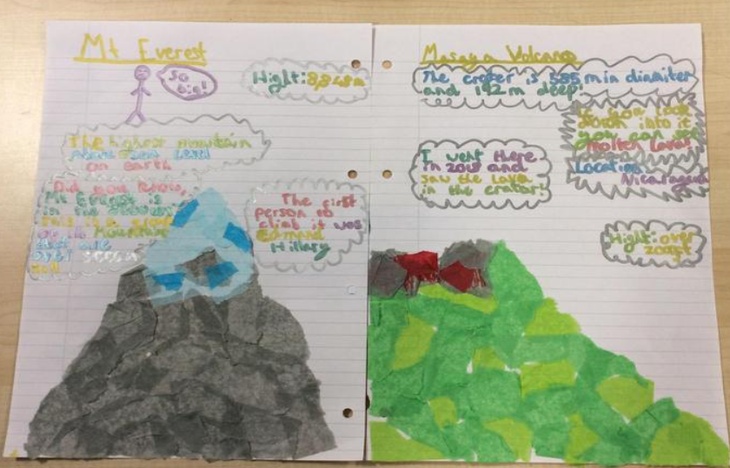 Mt Everest
So
big!
Hight: 8,848m
The highest mountain
above sea level
on Earth
Did you know,
Mt Everest is
in the
Mountains
are
over
The first
person to
climb it was
Edmund
Hillary
Masaya Volcano
The crater is 585 m in diamiter
and 192 m deep!
you look
down into it
you can see
molten lava!
Location:
Nicaragua
I went there
in 2018 and
saw the lava
in the crator!
Hight: over
2000ft